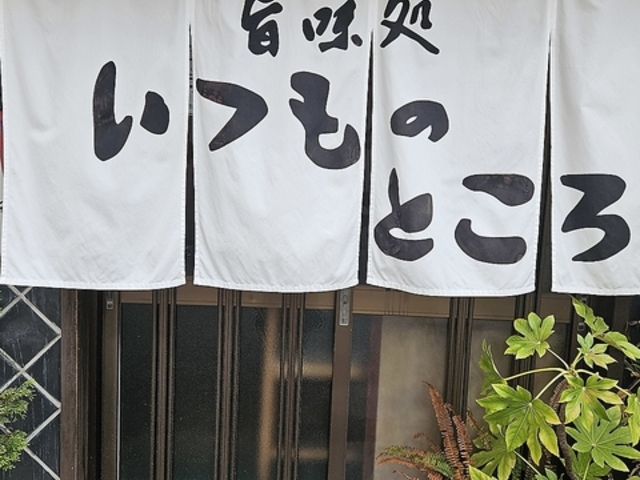 旨味処
いつもの
ところ